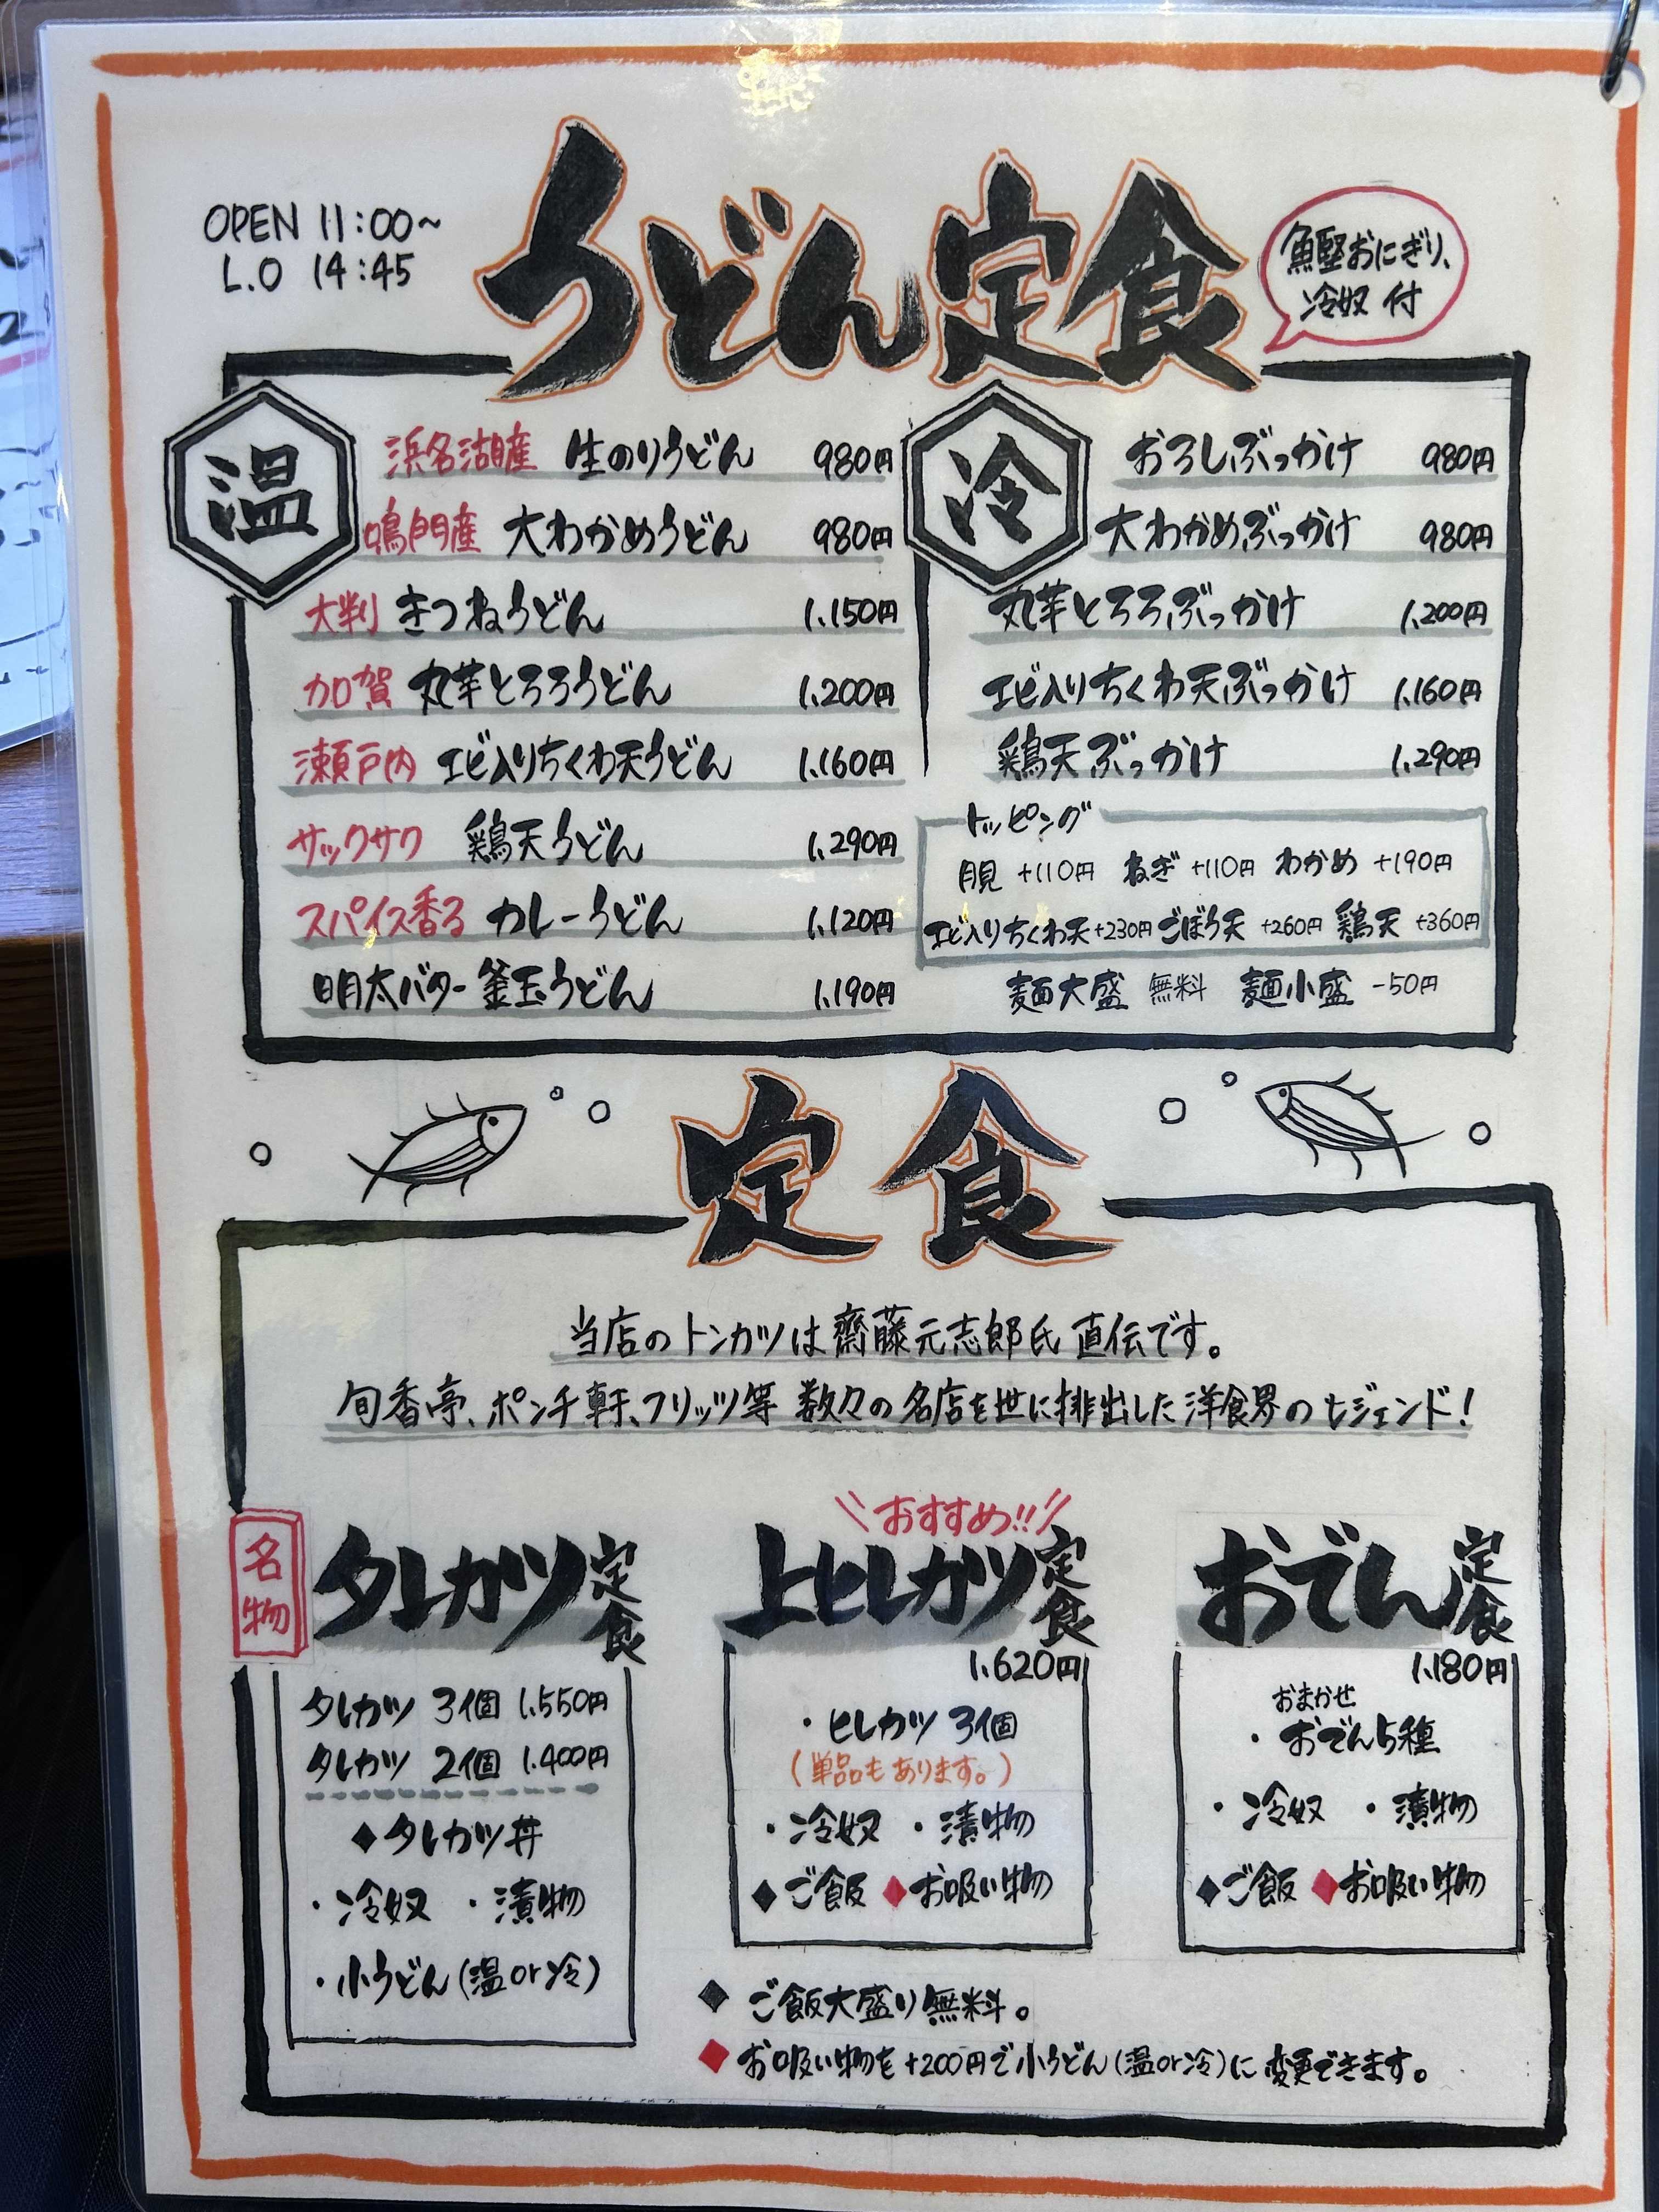 OPEN 11:00~
L.O 14:45
うどん定食
鰹おにぎり、
冷奴 付
温
浜名湖産 生のりうどん 980円
鳴門産 大わかめうどん 980円
大判 きつねうどん 1,150円
加賀 丸芋とろろうどん 1,200円
瀬戸内 エビ入りちくわ天うどん 1,160円
サックサク 鶏天うどん 1,290円
スパイス香る カレーうどん 1,120円
明太バター釜玉うどん 1,190円
冷
おろしぶっかけ 980円
大わかめぶっかけ 980円
丸芋とろろぶっかけ 1,200円
エビ入りちくわ天ぶっかけ 1,160円
鶏天ぶっかけ 1,290円
トッピング
月見 +110円 ねぎ +110円 わかめ +190円
エビ入りちくわ天+230円 ごぼう天 +260円 鶏天 +360円
麺大盛 無料 麺小盛 -50円
定食
当店のトンカツは齋藤元志郎氏 直伝です。
旬香亭、ポンチ軒、フリッツ等 数々の名店を世に排出した洋食界のレジェンド!
名物
タレカツ定食
タレカツ 3個 1,550円
タレカツ 2個 1,400円
◆タレカツ丼
・冷奴 ・漬物
・小うどん(温or冷)
おすすめ!!
上ヒレカツ定食
1,620円
・ヒレカツ 3個
(単品もあります。)
・冷奴 ・漬物
◆ご飯 ◆お吸い物
おでん定食
1,180円
おまかせ
・おでん5種
・冷奴 ・漬物
◆ご飯 ◆お吸い物
◆ ご飯大盛り無料。
◆ お吸い物を+200円で小うどん(温or冷)に変更できます。